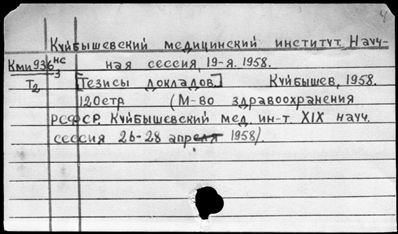 Куйбышевский медицинский институт. Науч-
ная сессия, 19-я. 1958.
Кми936 нс
3
Т2
[Тезисы докладов] Куйбышев, 1958.
120стр (М-во здравоохранения
РСФСР. Куйбышевский мед. ин-т XIX науч.
сессия 26-28 апреля 1958).